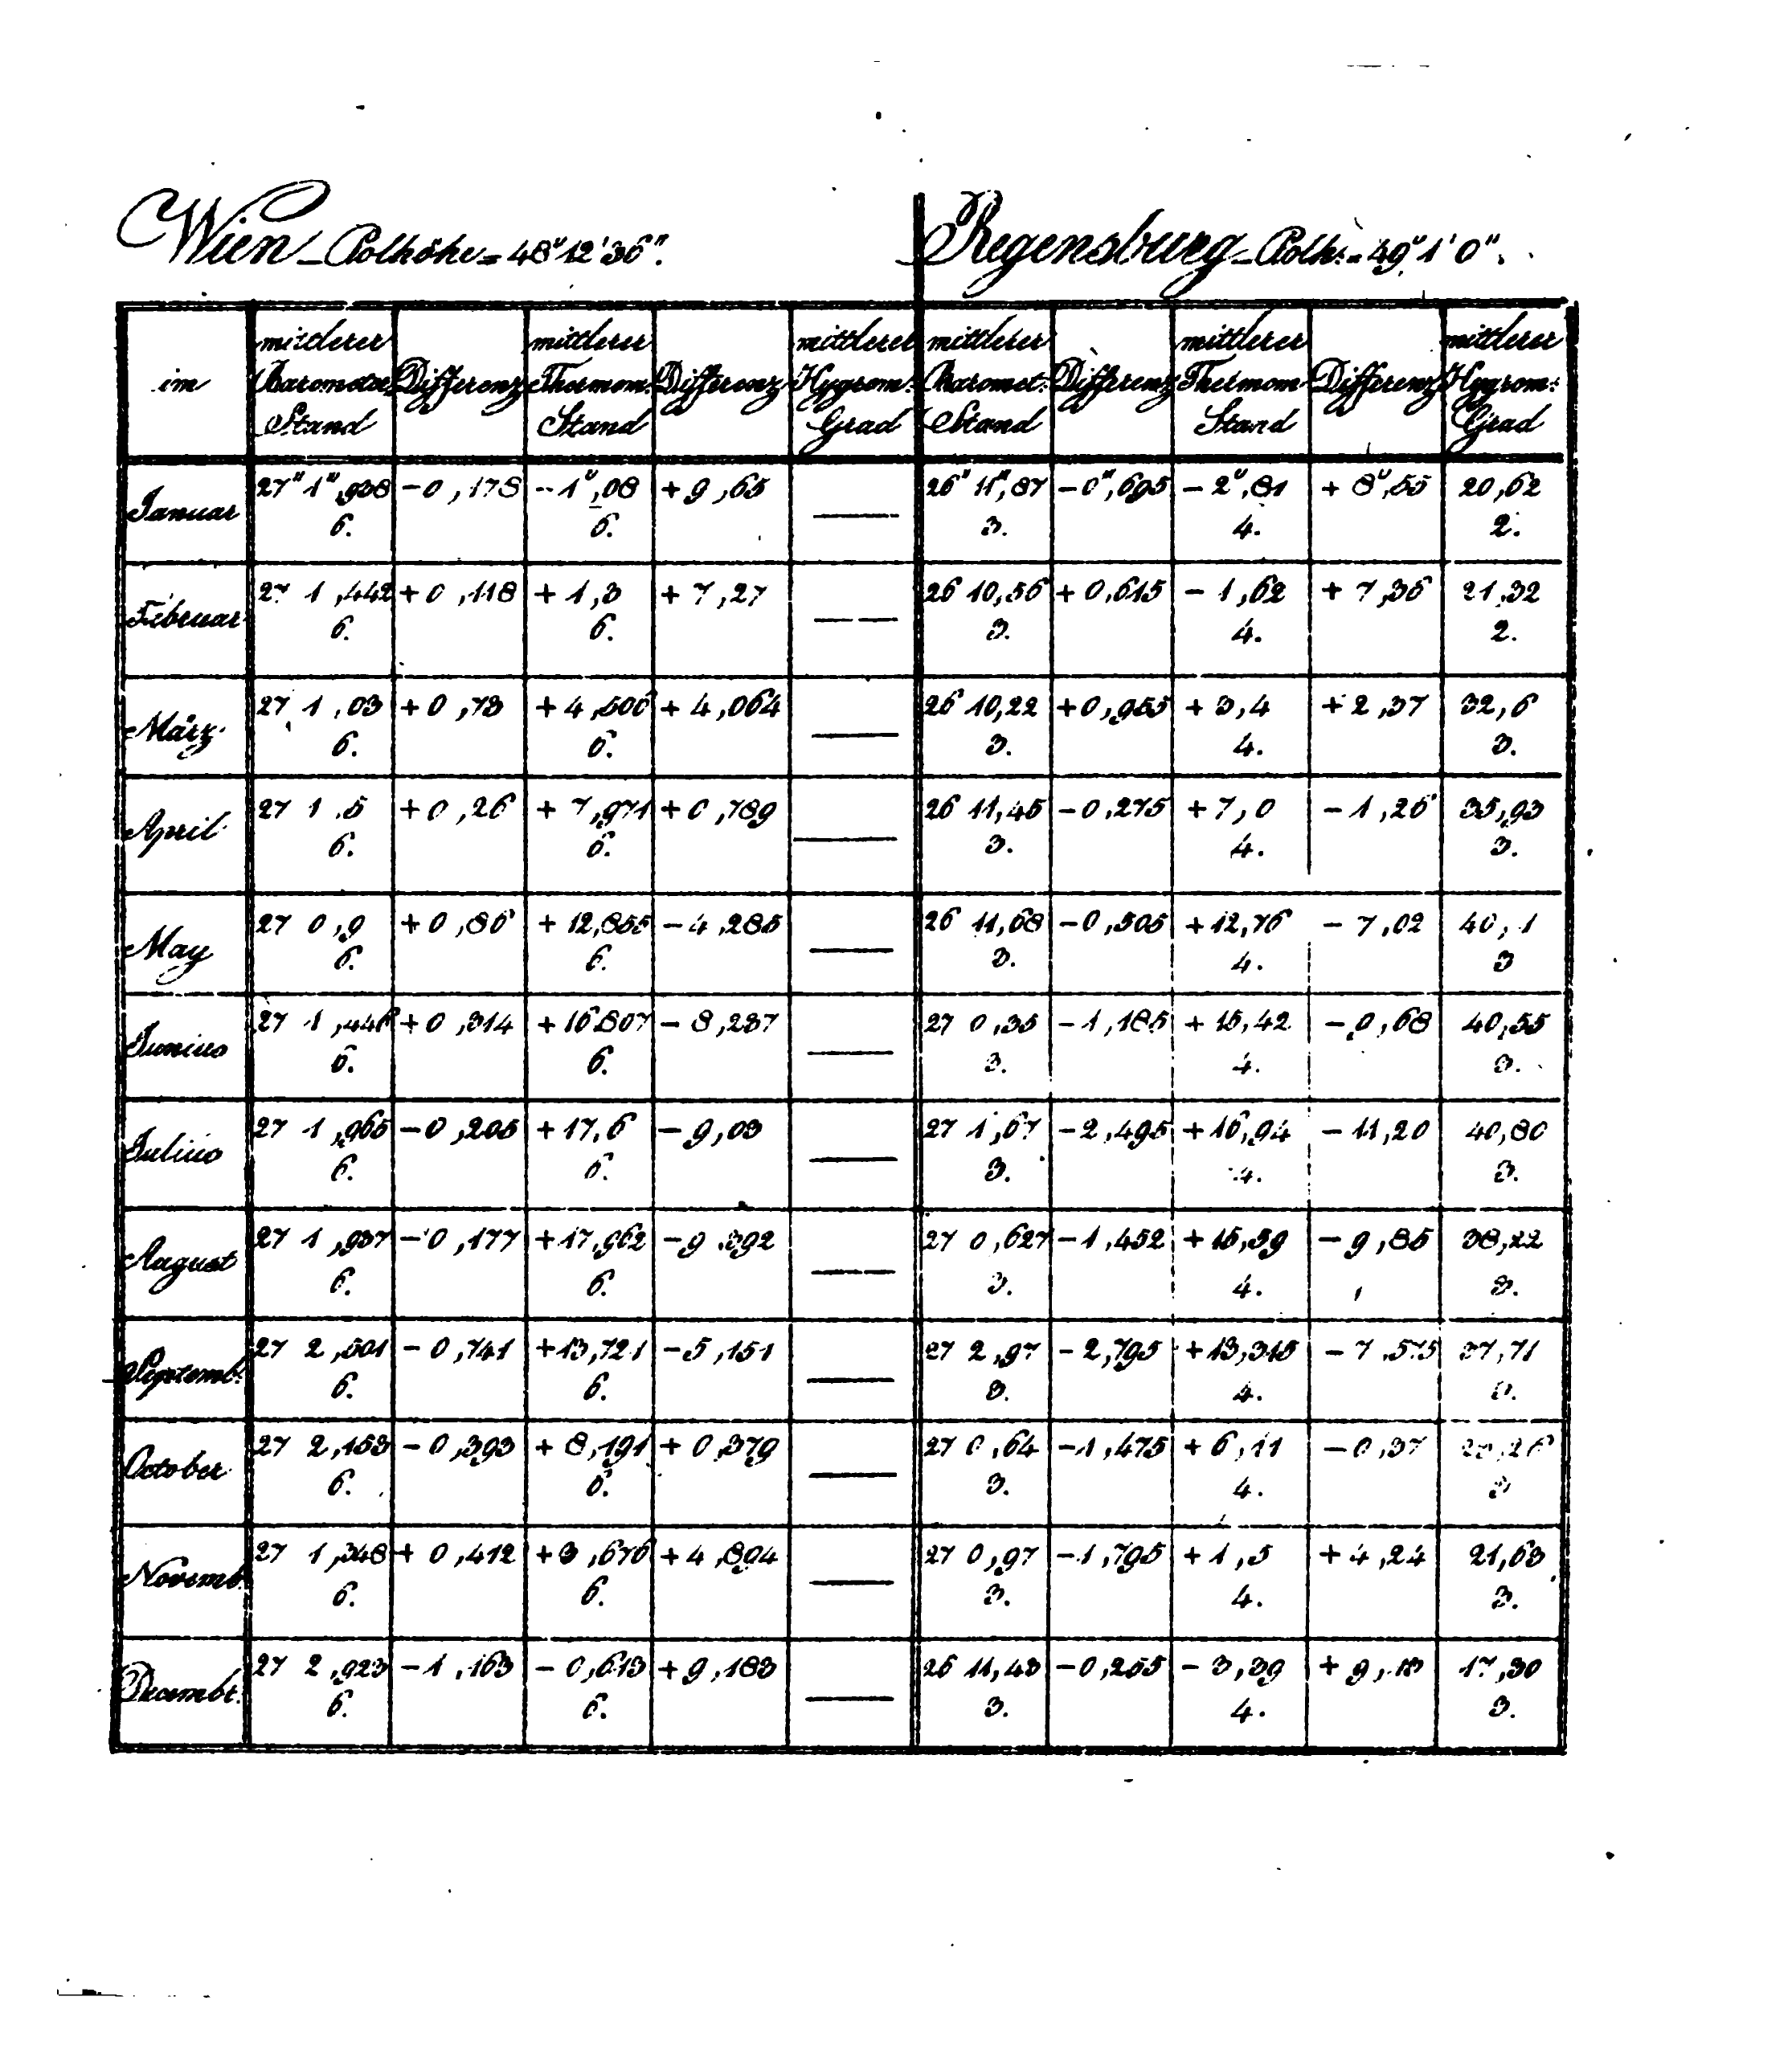 Wien – Polhöhe = 48° 12' 36".
Regensburg – Polh: = 49° 1' 0".
im | mittlerer Barometer Stand | Differenz | mittlerer Thermom: Stand | Differenz | mittlerer Hygrom: Grad | mittlerer Baromet: Stand | Differenz | mittlerer Thermom Stand | Differenz | mittlerer Hygrom: Grad
Januar | 27" 1"',938 | -0,178 | -1°,08 | +9,65 | — | 26" 11"',87 | -0"',695 | -2°,81 | +8°,55 | 20,62
6. | 6. | 3. | 4. | 2.
Februar | 27 1,442 | +0,118 | +1,3 | +7,27 | — | 26 10,56 | +0,615 | -1,62 | +7,36 | 21,32
6. | 6. | 3. | 4. | 2.
März | 27 1,03 | +0,73 | +4,506 | +4,064 | — | 26 10,22 | +0,955 | +3,4 | +2,37 | 32,6
6. | 6. | 3. | 4. | 3.
April | 27 1,5 | +0,26 | +7,971 | +0,789 | — | 26 11,45 | -0,275 | +7,0 | -1,26 | 35,93
6. | 6. | 3. | 4. | 3.
May | 27 0,9 | +0,86 | +12,855 | -4,285 | — | 26 11,68 | -0,505 | +12,76 | -7,02 | 40,1
6. | 6. | 3. | 4. | 3
Junius | 27 1,446 | +0,314 | +16,807 | -8,237 | — | 27 0,35 | -1,185 | +15,42 | -9,68 | 40,55
6. | 6. | 3. | 4. | 3.
Julius | 27 1,965 | -0,205 | +17,6 | -9,03 | — | 27 1,67 | -2,495 | +16,94 | -11,20 | 40,80
6. | 6. | 3. | 4. | 3.
August | 27 1,937 | -0,177 | +17,962 | -9,392 | — | 27 0,627 | -1,452 | +15,59 | -9,85 | 38,22
6. | 6. | 3. | 4. | 3.
Septemb: | 27 2,501 | -0,741 | +13,721 | -5,151 | — | 27 2,97 | -2,795 | +13,315 | -7,575 | 37,71
6. | 6. | 3. | 4. | 3.
October | 27 2,153 | -0,393 | +8,191 | +0,379 | — | 27 0,64 | -1,475 | +6,11 | -0,37
6. | 6. | 3. | 4. | 3
Novemb. | 27 1,348 | +0,412 | +3,676 | +4,894 | — | 27 0,97 | -1,795 | +1,5 | +4,24 | 21,63
6. | 6. | 3. | 4. | 3.
Decembr. | 27 2,923 | -1,163 | -0,613 | +9,183 | — | 26 11,43 | -0,255 | -3,39 | +9,13 | 17,30
6. | 6. | 3. | 4. | 3.